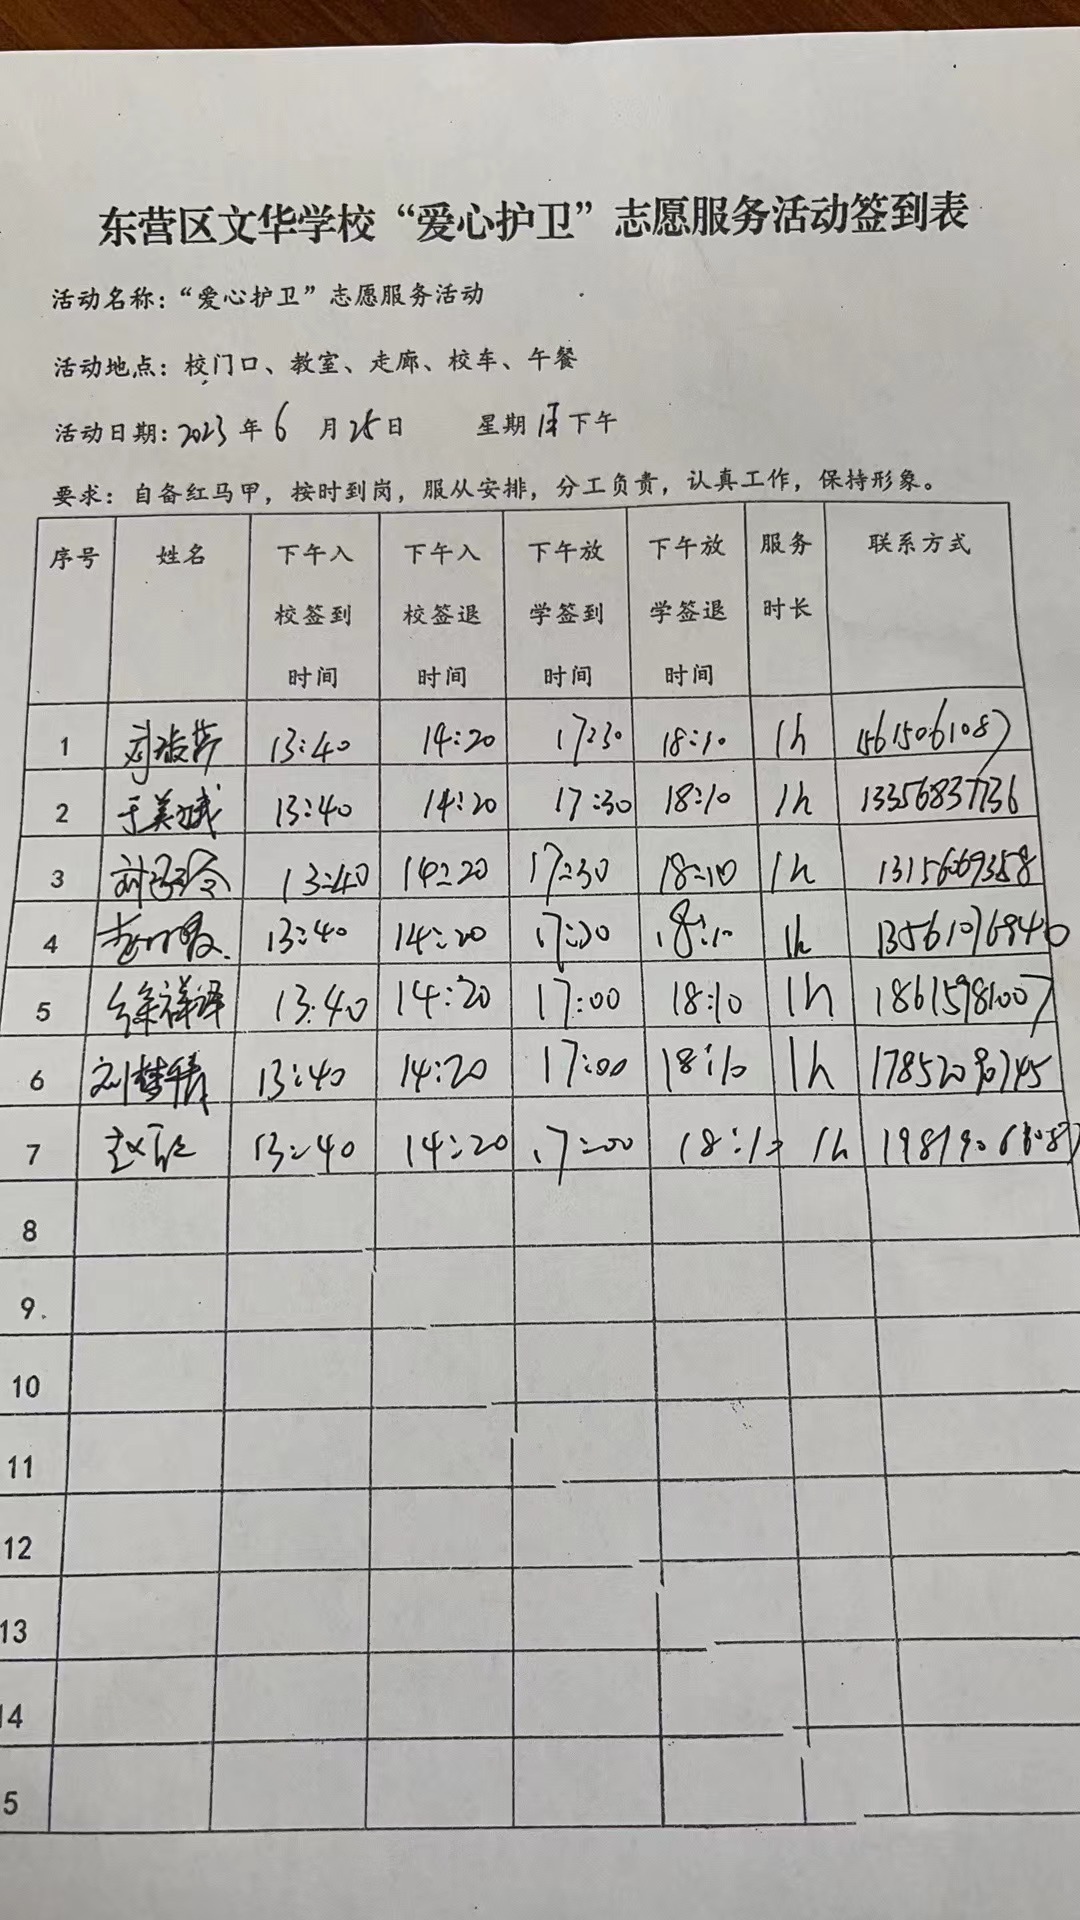 东营区文华学校“爱心护卫”志愿服务活动签到表
活动名称：“爱心护卫”志愿服务活动
活动地点：校门口、教室、走廊、校车、午餐
活动日期：2023年6月25日 星期 下午
要求：自备红马甲，按时到岗，服从安排，分工负责，认真工作，保持形象。
序号 姓名 下午入校签到时间 下午入校签退时间 下午放学签到时间 下午放学签退时间 服务时长 联系方式
1 13:40 14:20 17:30 18:10 1h 15615061087
2 于美斌 13:40 14:20 17:30 18:10 1h 13356837736
3 13:40 14:20 17:30 18:10 1h 13156069358
4 13:40 14:20 17:30 18:10 1h 13561076940
5 徐祥译 13:40 14:20 17:00 18:10 1h 18615981007
6 刘梦倩 13:40 14:20 17:00 18:10 1h
7 13:40 14:20 17:00 18:10 1h
8
9
10
11
12
13
14
5